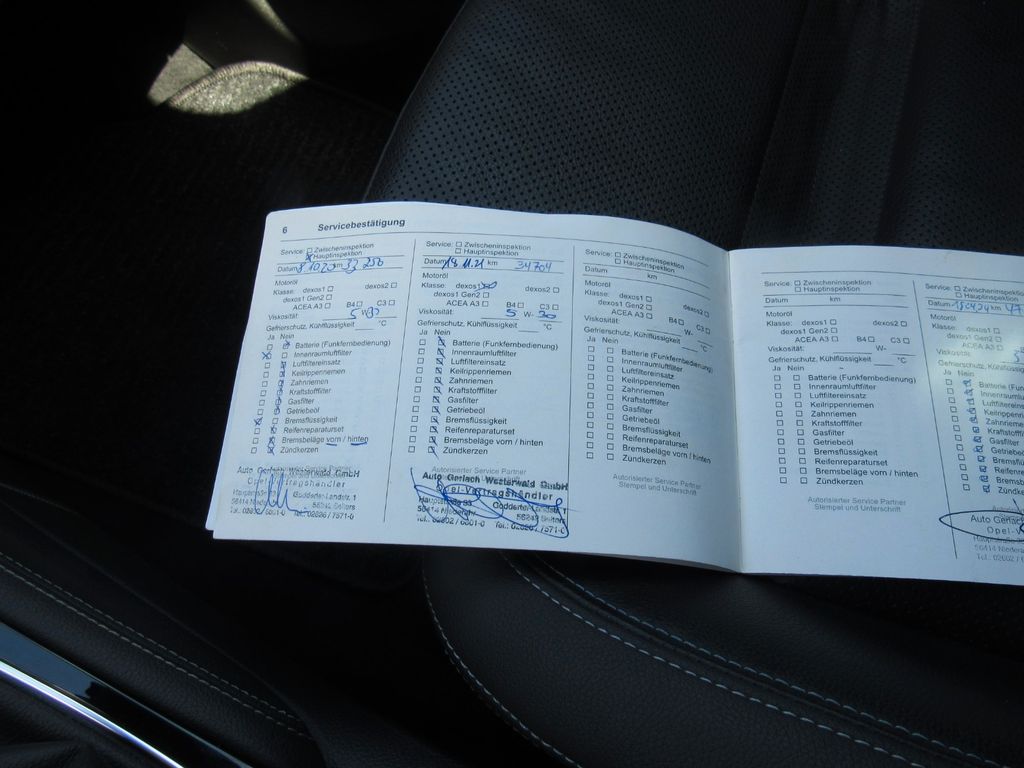 6 Servicebestätigung
Service: Zwischeninspektion
Hauptinspektion
Datum 8.10.20 km 33 250
Motoröl
Klasse: dexos1 dexos2
dexos1 Gen2
ACEA A3 B4 C3
Viskosität: 5 W- 30
Gefrierschutz, Kühlflüssigkeit °C
Ja Nein
Batterie (Funkfernbedienung)
Innenraumluftfilter
Luftfiltereinsatz
Keilrippenriemen
Zahnriemen
Kraftstofffilter
Gasfilter
Getriebeöl
Bremsflüssigkeit
Reifenreparaturset
Bremsbeläge vorn / hinten
Zündkerzen
Auto Gerlach Westerwald GmbH
Opel-Vertragshändler
Service: Zwischeninspektion
Hauptinspektion
Datum 18.11.21 km 34704
Motoröl
Klasse: dexos1 dexos2
dexos1 Gen2
ACEA A3 B4 C3
Viskosität: 5 W- 30
Gefrierschutz, Kühlflüssigkeit °C
Ja Nein
Batterie (Funkfernbedienung)
Innenraumluftfilter
Luftfiltereinsatz
Keilrippenriemen
Zahnriemen
Kraftstofffilter
Gasfilter
Getriebeöl
Bremsflüssigkeit
Reifenreparaturset
Bremsbeläge vorn / hinten
Zündkerzen
Autorisierter Service Partner
Auto Gerlach Westerwald GmbH
Opel-Vertragshändler
Service: Zwischeninspektion
Hauptinspektion
Datum km
Motoröl
Klasse: dexos1 dexos2
dexos1 Gen2
ACEA A3 B4 C3
Viskosität: W-
Gefrierschutz, Kühlflüssigkeit °C
Ja Nein
Batterie (Funkfernbedienung)
Innenraumluftfilter
Luftfiltereinsatz
Keilrippenriemen
Zahnriemen
Kraftstofffilter
Gasfilter
Getriebeöl
Bremsflüssigkeit
Reifenreparaturset
Bremsbeläge vorn / hinten
Zündkerzen
Autorisierter Service Partner
Stempel und Unterschrift
Service: Zwischeninspektion
Hauptinspektion
Datum km
Motoröl
Klasse: dexos1 dexos2
dexos1 Gen2
ACEA A3 B4 C3
Viskosität: W-
Gefrierschutz, Kühlflüssigkeit °C
Ja Nein
Batterie (Funkfernbedienung)
Innenraumluftfilter
Luftfiltereinsatz
Keilrippenriemen
Zahnriemen
Kraftstofffilter
Gasfilter
Getriebeöl
Bremsflüssigkeit
Reifenreparaturset
Bremsbeläge vorn / hinten
Zündkerzen
Autorisierter Service Partner
Stempel und Unterschrift
Service:
Datum km
Motoröl
Klasse: dexos1
dexos1 Gen2
ACEA A3
Viskosität:
Gefrierschutz,
Ja Nein
Auto Gerlach